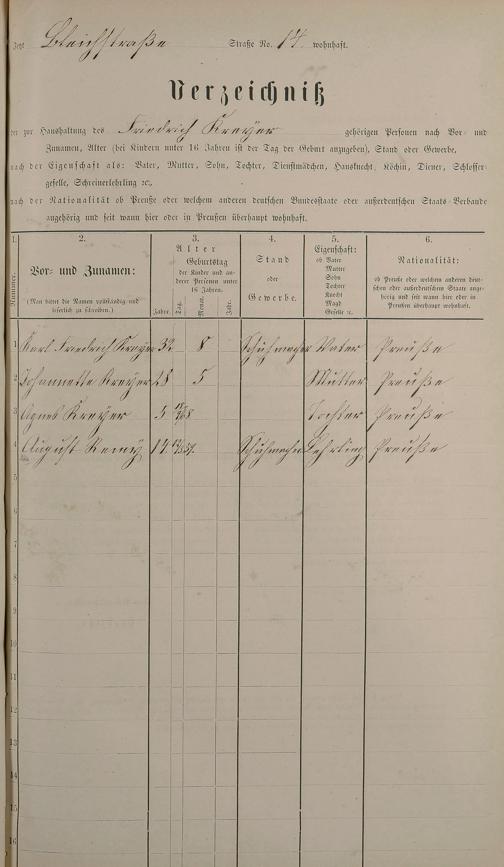 Jetzt Bleichstraße Straße No. 14. wohnhaft.
Verzeichniß
der zur Haushaltung des Friedrich Kreyer gehörigen Personen nach Vor- und
Zunamen, Alter (bei Kindern unter 16 Jahren ist der Tag der Geburt anzugeben), Stand oder Gewerbe,
nach der Eigenschaft als: Vater, Mutter, Sohn, Tochter, Dienstmädchen, Hausknecht, Köchin, Diener, Schlosser-
geselle, Schreinerlehrling ꝛc,
nach der Nationalität ob Preuße oder welchem anderen deutschen Bundesstaate oder außerdeutschen Staats-Verbande
angehörig und seit wann hier oder in Preußen überhaupt wohnhaft.
1. 2. 3. 4. 5. 6.
Nummer.
Vor- und Zunamen:
(Man bittet die Namen vollständig und
leserlich zu schreiben.)
Alter
Geburtstag
der Kinder und an-
derer Personen unter
16 Jahren.
Jahre. Tag. Monat. Jahr.
Stand
oder
Gewerbe.
Eigenschaft:
ob Vater
Mutter
Sohn
Tochter
Köchin
Knecht
Magd
Geselle ꝛc.
Nationalität:
ob Preuße oder welchem anderen deut-
schen oder außerdeutschen Staate ange-
hörig und seit wann hier oder in
Preußen überhaupt wohnhaft.
1 Karl Friedrich Kreyer 32 8 Schuhmacher Vater Preuße
2 Johannette Kreyer 28 5 Mutter Preuße
3 Agnes Kreyer 5 Tochter Preuße
4 August Remy 14. Schuhmacher Lehrling Preuße
5
6
7
8
9
10
11
12
13
14
15
16